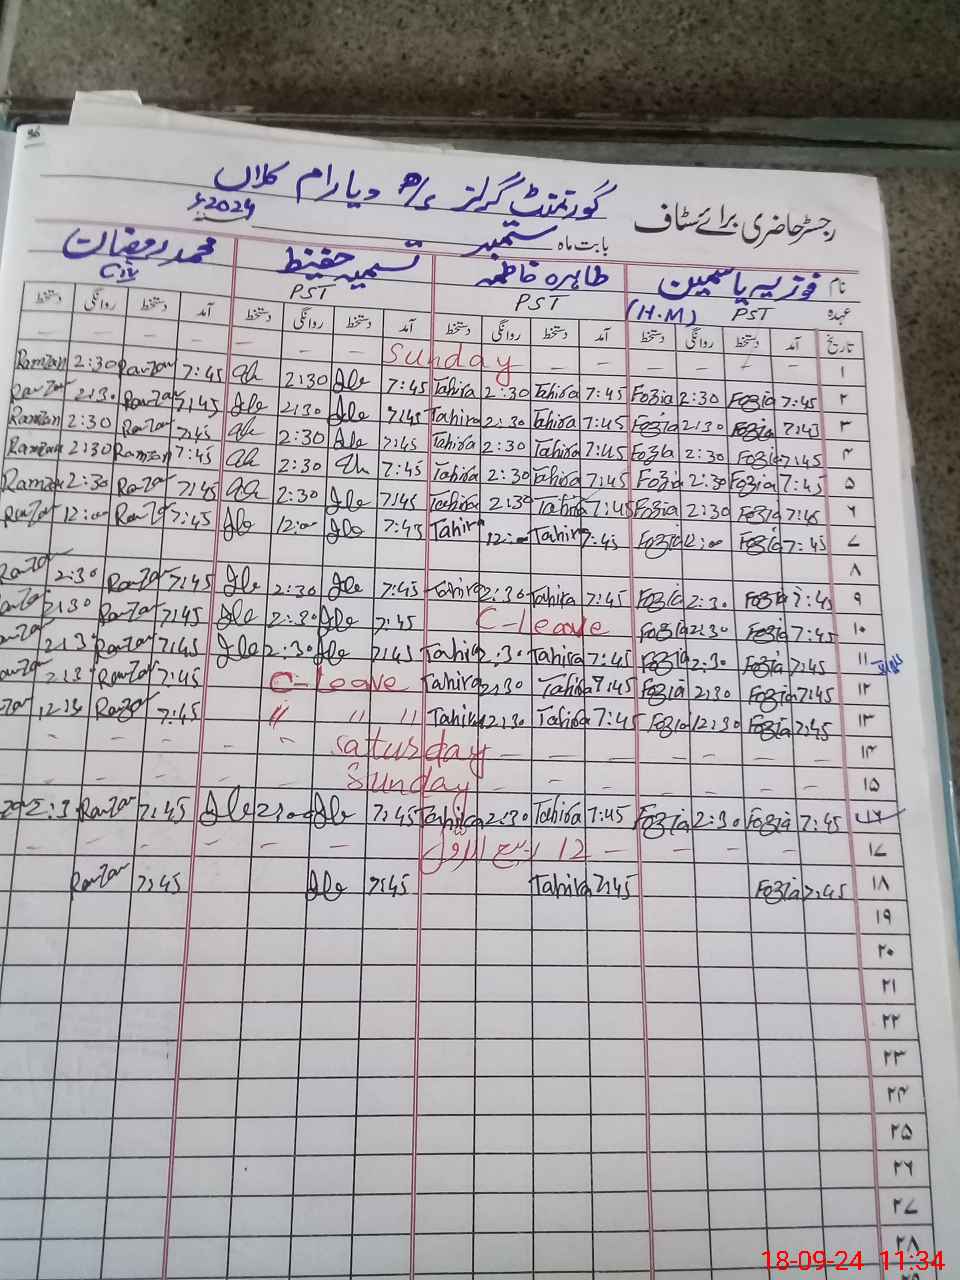 36
گورنمنٹ گرلز P/S دیا رام کلاں
رجسٹر حاضری برائے سٹاف
بابت ماہ ستمبر 2024ء
نام فوزیہ یاسمین طاہرہ فاطمہ تسمیہ حفیظ محمد رمضان
عہدہ PST (H.M) PST PST C-iv
تاریخ آمد دستخط روانگی دستخط آمد دستخط روانگی دستخط آمد دستخط روانگی دستخط آمد دستخط روانگی دستخط
۱ Sunday
۲ 7:45 Fozia 2:30 Fozia 7:45 Tahira 2:30 Tahira 7:45 2:30 7:45 Ramzan 2:30 Ramzan
۳ 7:45 Fozia 2:30 Fozia 7:45 Tahira 2:30 Tahira 7:45 2:30 7:45 Ramzan 2:30 Ramzan
۴ 7:45 Fozia 2:30 Fozia 7:45 Tahira 2:30 Tahira 7:45 2:30 7:45 Ramzan 2:30 Ramzan
۵ 7:45 Fozia 2:30 Fozia 7:45 Tahira 2:30 Tahira 7:45 2:30 7:45 Ramzan 2:30 Ramzan
۶ 7:45 Fozia 2:30 Fozia 7:45 Tahira 2:30 Tahira 7:45 2:30 7:45 Ramzan 2:30 Ramzan
۷ 7:45 Fozia 12:00 Fozia 7:45 Tahira 12:00 Tahira 7:45 12:00 7:45 Ramzan 12:00 Ramzan
۸
۹ 7:45 Fozia 2:30 Fozia 7:45 Tahira 2:30 Tahira 7:45 2:30 7:45 Ramzan 2:30 Ramzan
۱۰ 7:45 Fozia 2:30 Fozia C-Leave 7:45 2:30 7:45 Ramzan 2:30 Ramzan
۱۱ 7:45 Fozia 2:30 Fozia 7:45 Tahira 2:30 Tahira 7:45 2:30 7:45 Ramzan 2:3
۱۲ 7:45 Fozia 2:30 Fozia 7:45 Tahira 2:30 Tahira C-Leave 7:45 Ramzan 2:3
۱۳ 7:45 Fozia 12:30 Fozia 7:45 Tahira 12:30 Tahira " " " 7:45 Ramzan 12:3
۱۴ Saturday
۱۵ Sunday
۱۶ 7:45 Fozia 2:30 Fozia 7:45 Tahira 2:30 Tahira 7:45 2:30 7:45 Ramzan 2:3
۱۷ 12 ربیع الاول
۱۸ 7:45 Fozia 7:45 Tahira 7:45 7:45 Ramzan
۱۹
۲۰
۲۱
۲۲
۲۳
۲۴
۲۵
۲۶
۲۷
۲۸
18-09-24 11:34